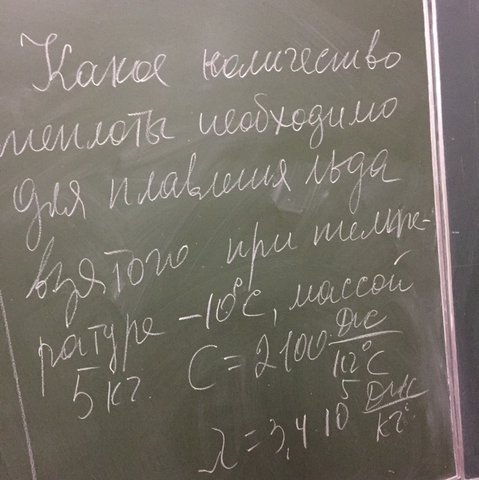 Какое количество
теплоты необходимо
для плавления льда
взятого при темпе-
ратуре -10°C, массой
5 кг. C = 2100 Дж/кг°C
λ = 3,4 10⁵ Дж/кг